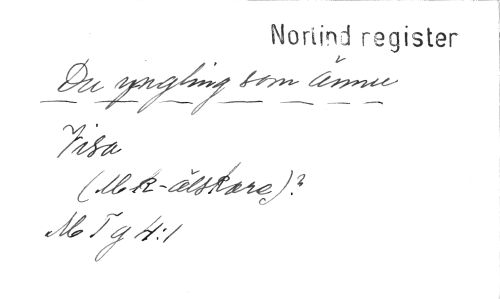 Norlind register
Du yngling som ännu
Visa
(M k-älskare)?
M T g 4:1